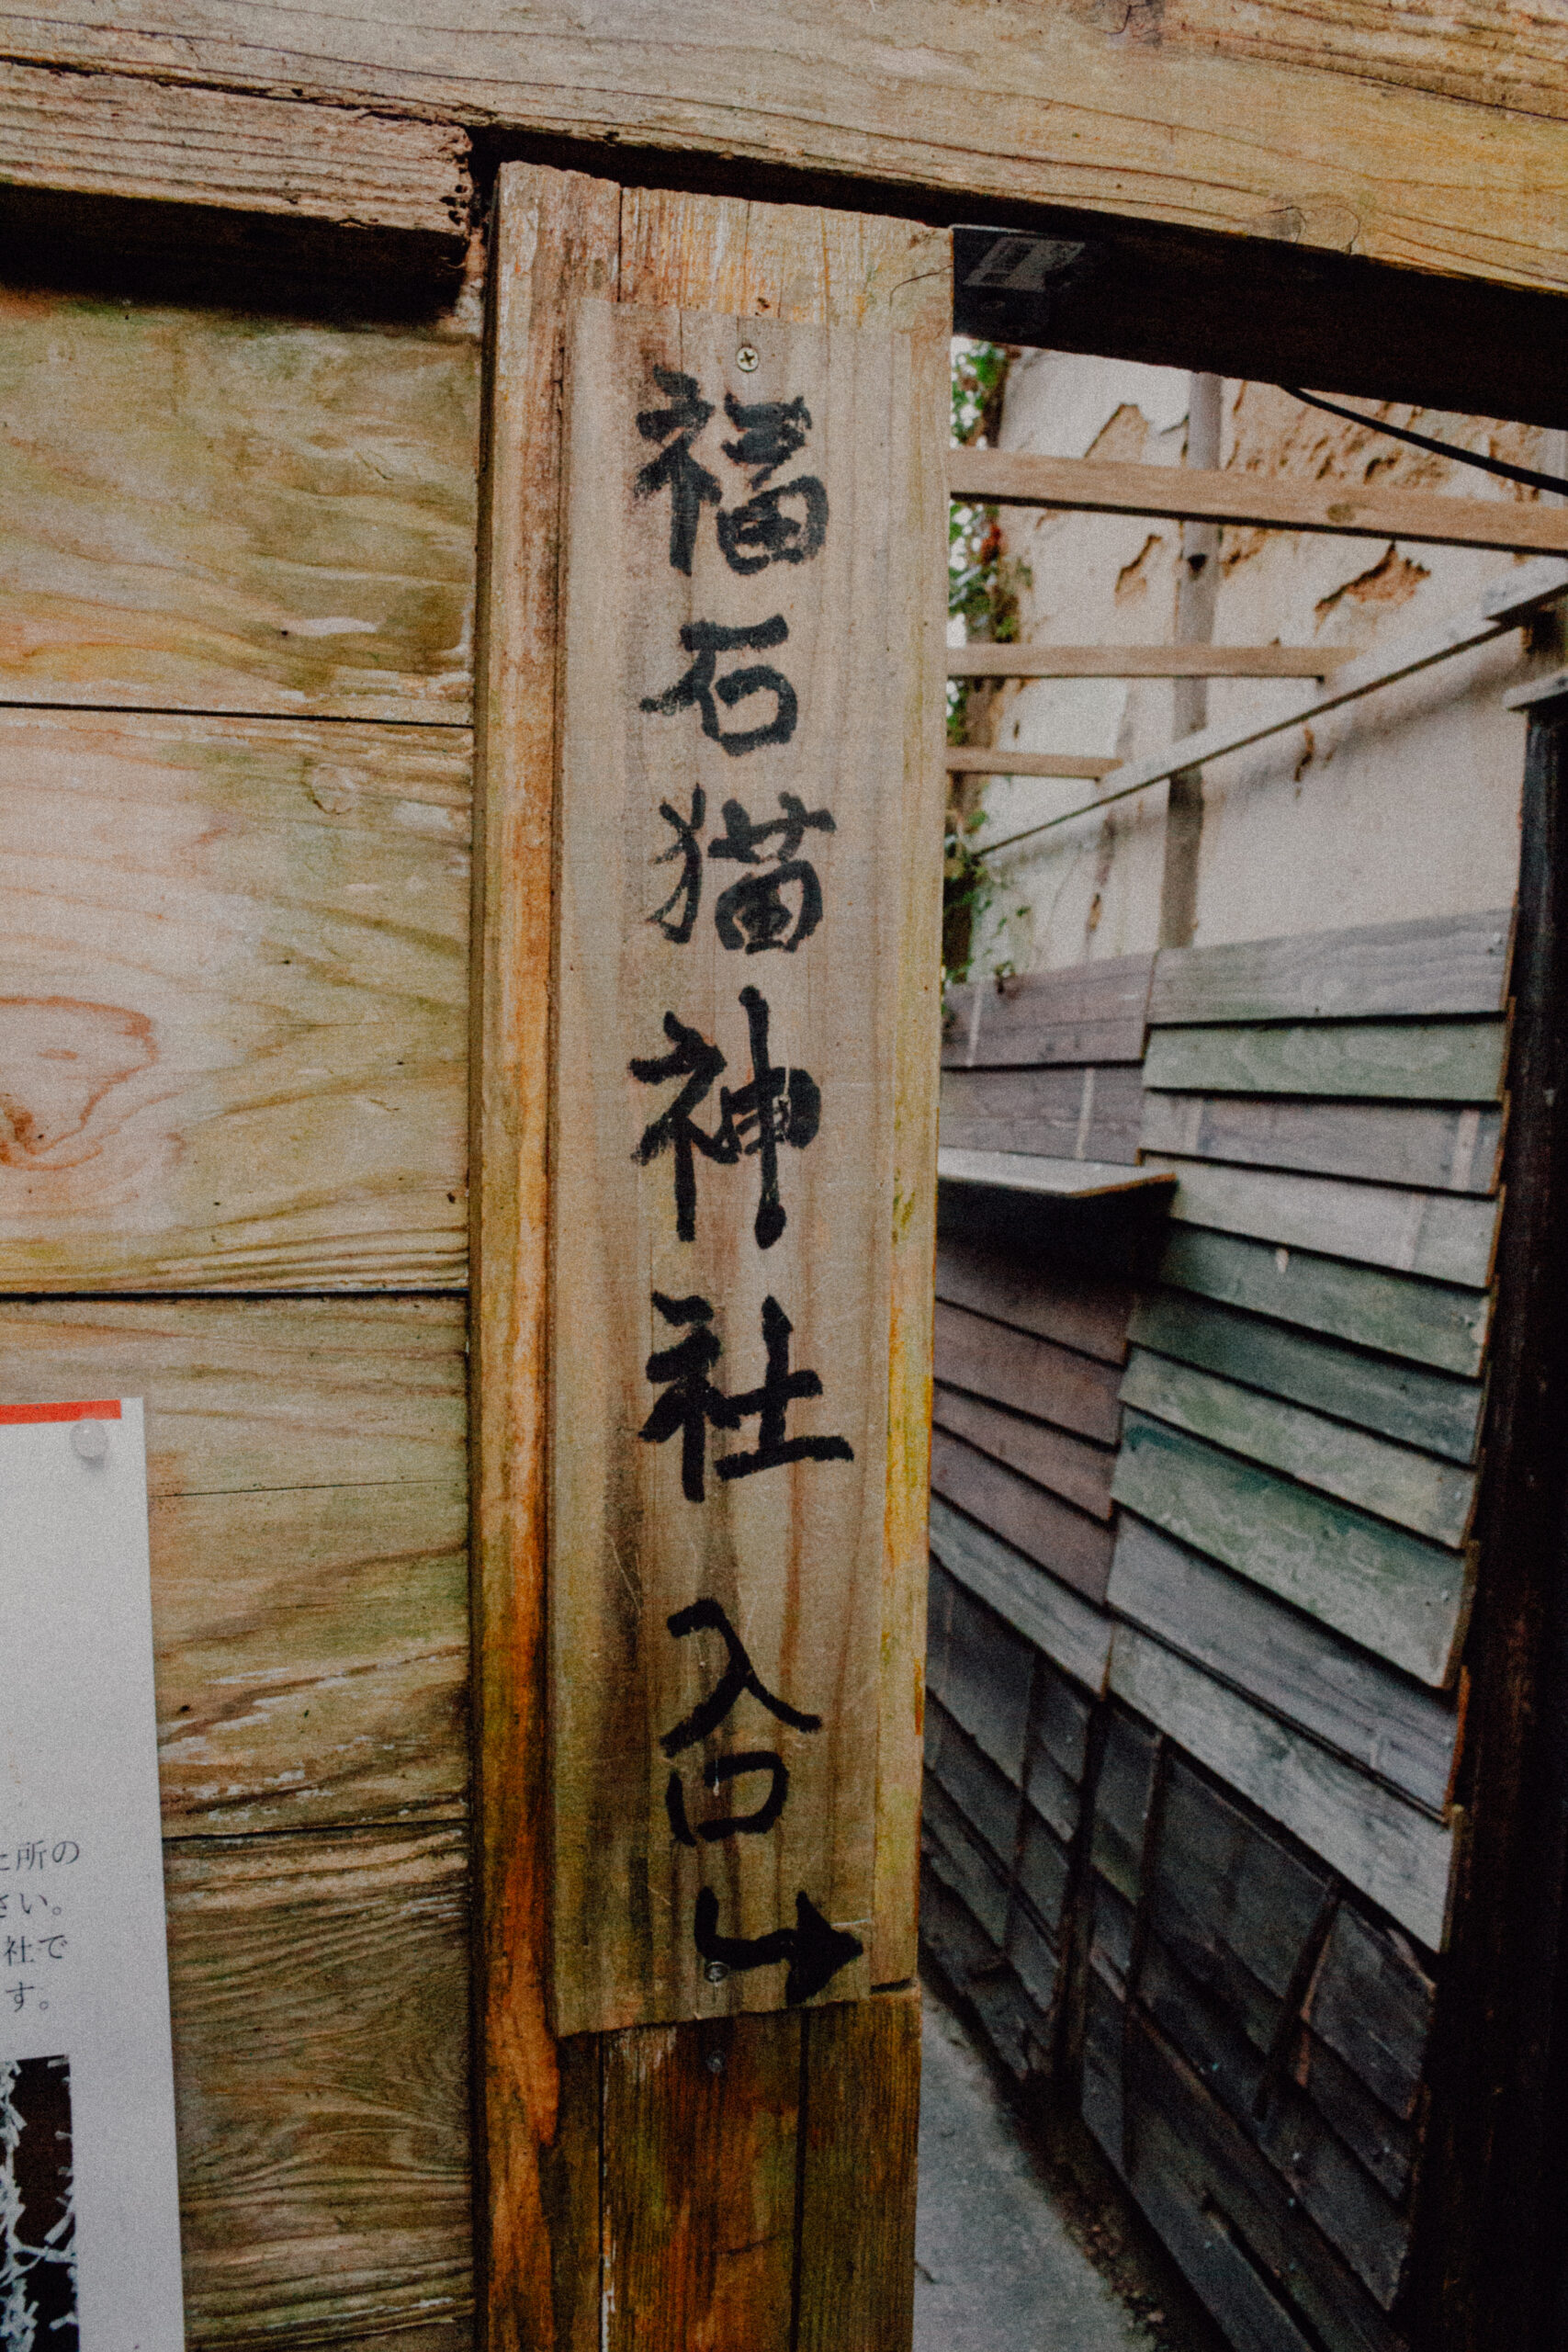 福石猫神社 入口
た所の
さい。
社で
す。